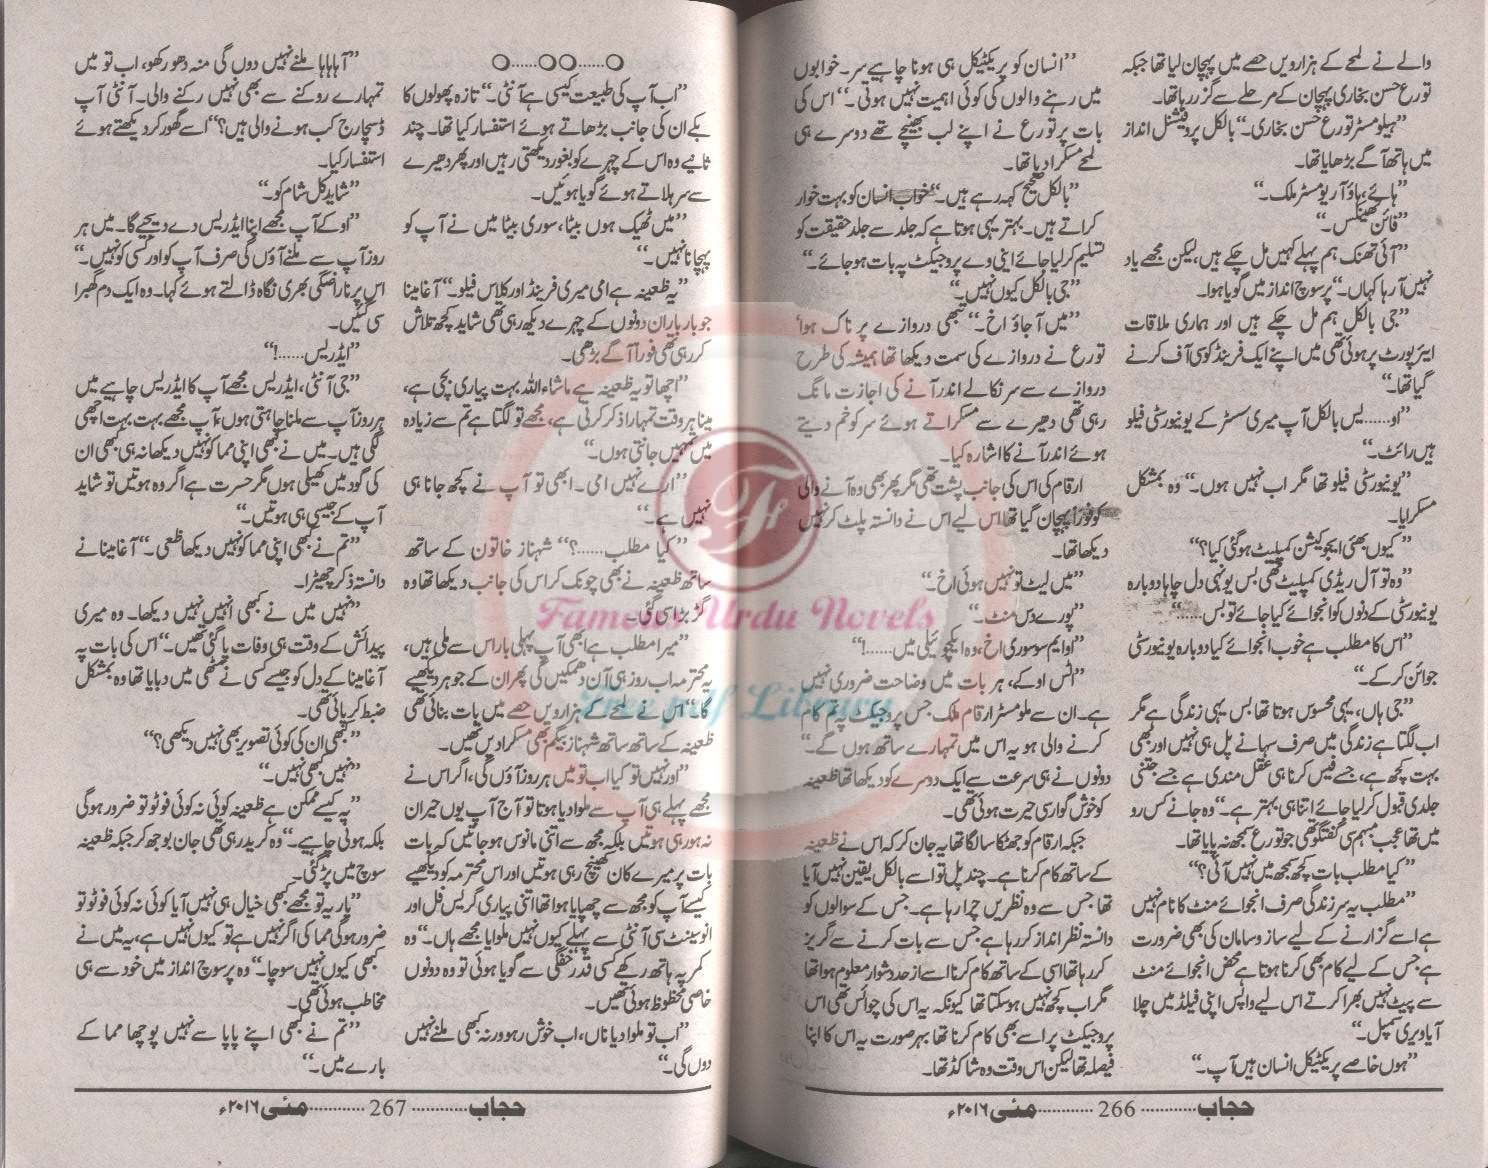 والے نے لمحے کے ہزارویں حصے میں پہچان لیا تھا جبکہ
تورع حسن بخاری پہچان کے مرحلے سے گزر رہا تھا۔
’’ہیلو مسٹر تورع حسن بخاری۔‘‘ بالکل پروفیشنل انداز
میں ہاتھ آگے بڑھایا تھا۔
’’ہائے، ہاؤ آر یو مسٹر ملک۔‘‘
’’فائن تھینکس۔‘‘
’’آئی تھنک ہم پہلے کہیں مل چکے ہیں، لیکن مجھے یاد
نہیں آ رہا کہاں۔‘‘ پرسوچ انداز میں گویا ہوا۔
’’جی بالکل ہم مل چکے ہیں اور ہماری ملاقات
ایئرپورٹ پر ہوئی تھی میں اپنے ایک فرینڈ کو سی آف کرنے
گیا تھا۔‘‘
’’او......یس بالکل آپ میری سسٹر کے یونیورسٹی فیلو
ہیں رائٹ۔‘‘
’’یونیورسٹی فیلو تھا مگر اب نہیں ہوں۔‘‘ وہ بمشکل
مسکرایا۔
’’کیوں بھئی ایجوکیشن کمپلیٹ ہوگئی کیا؟‘‘
’’وہ تو آل ریڈی کمپلیٹ تھی بس یونہی دل چاہا دوبارہ
یونیورسٹی کے دنوں کو انجوائے کیا جائے تو بس......‘‘
’’اس کا مطلب ہے خوب انجوائے کیا دوبارہ یونیورسٹی
جوائن کرکے۔‘‘
’’جی ہاں، یہی محسوس ہوتا تھا بس یہی زندگی ہے مگر
اب لگتا ہے زندگی میں صرف سہانے پل ہی نہیں اور بھی
بہت کچھ ہے، جسے فیس کرنا ہی عقل مندی ہے جسے جتنی
جلدی قبول کرلیا جائے اتنا ہی بہتر ہے۔‘‘ وہ جانے کس رو
میں تھا عجب مبہم سی گفتگو تھی جو تورع سمجھ نہ پایا تھا۔
’’کیا مطلب بات کچھ سمجھ میں نہیں آئی؟‘‘
’’مطلب یہ سر زندگی صرف انجوائے منٹ کا نام نہیں
ہے اسے گزارنے کے لیے ساز و سامان کی بھی ضرورت
ہے جس کے لیے کام بھی کرنا ہوتا ہے محض انجوائے منٹ
سے پیٹ نہیں بھرا کرتے اس لیے واپس اپنی فیلڈ میں چلا
آیا ویری سمپل۔‘‘
’’ہوں خاصے پریکٹیکل انسان ہیں آپ۔‘‘
’’انسان کو پریکٹیکل ہی ہونا چاہیے سر۔ خوابوں
میں رہنے والوں کی کوئی اہمیت نہیں ہوتی۔‘‘ اس کی
بات پر تورع نے اپنے لب بھینچے تھے دوسرے ہی
لمحے مسکرا دیا تھا۔
’’بالکل صحیح کہہ رہے ہیں۔‘‘ خواب انسان کو بہت خوار
کراتے ہیں۔ بہتر یہی ہوتا ہے کہ جلد سے جلد حقیقت کو
تسلیم کرلیا جائے اینی وے پروجیکٹ پہ بات ہوجائے۔‘‘
’’جی بالکل کیوں نہیں۔‘‘
’’میں آجاؤ اخ۔‘‘ تبھی دروازے پر ناک ہوا‘
تورع نے دروازے کی سمت دیکھا تھا ہمیشہ کی طرح
دروازے سے سر نکالے اندر آنے کی اجازت مانگ
رہی تھی دھیرے سے مسکراتے ہوئے سر کو خم دیتے
ہوئے اندر آنے کا اشارہ کیا۔
ارقام کی اس کی جانب پشت تھی مگر پھر بھی وہ آنے والی
کو فوراً پہچان گیا تھا اس لیے اس نے دانستہ پلٹ کر نہیں
دیکھا تھا۔
’’میں لیٹ تو نہیں ہوئی اخ۔‘‘
’’پورے دس منٹ۔‘‘
’’او ایم سو سوری اخ، وہ ایکچوئیلی میں......!‘‘
’’اٹس اوکے، ہر بات میں وضاحت ضروری نہیں
ہے۔ ان سے ملو مسٹر ارقام ملک۔ جس پروجیکٹ پر تم کام
کرنے والی ہو یہ اس میں تمہارے ساتھ ہوں گے۔‘‘
دونوں نے ہی سرعت سے ایک دوسرے کو دیکھا تھا ظعینہ
کو خوش گوار سی حیرت ہوئی تھی۔
جبکہ ارقام کو جھٹکا سا لگا تھا یہ جان کر کہ اس نے ظعینہ
کے ساتھ کام کرنا ہے۔ چند پل تو اسے بالکل یقین نہیں آیا
تھا جس سے وہ نظریں چرا رہا ہے۔ جس کے سوالوں کو
دانستہ نظر انداز کر رہا ہے جس سے بات کرنے سے گریز
کر رہا تھا اسی کے ساتھ کام کرنا اسے ازحد دشوار معلوم ہوا تھا
مگر اب کچھ نہیں ہوسکتا تھا کیونکہ یہ اس کی چوائس تھی اس
پروجیکٹ پر اسے بھی کام کرنا تھا بہرصورت یہ اس کا اپنا
فیصلہ تھا لیکن اس وقت وہ شاکڈ تھا۔
حجاب ............ 266 ............ مئی ۲۰۱۶ء
○......○○......○
’’اب آپ کی طبیعت کیسی ہے آنٹی۔‘‘ تازہ پھولوں کا
بکے ان کی جانب بڑھاتے ہوئے استفسار کیا تھا۔ چند
ثانیے وہ اس کے چہرے کو بغور دیکھتی رہیں اور پھر دھیرے
سے سر ہلاتے ہوئے گویا ہوئیں۔
’’میں ٹھیک ہوں بیٹا، سوری بیٹا میں نے آپ کو
پہچانا نہیں۔‘‘
’’یہ ظعینہ ہے امی میری فرینڈ اور کلاس فیلو۔‘‘ آغامینا
جو بار بار ان دونوں کے چہرے دیکھ رہی تھی شاید کچھ تلاش
کر رہی تھی فوراً آگے بڑھی۔
’’اچھا تو یہ ظعینہ ہے ماشاء اللہ بہت پیاری بچی ہے،
مینا ہر وقت تمہارا ذکر کرتی ہے، مجھے تو لگتا ہے تم سے زیادہ
میں تمہیں جانتی ہوں۔‘‘
’’ارے نہیں امی۔ ابھی تو آپ نے کچھ جانا ہی
نہیں ہے۔‘‘
’’کیا مطلب......؟‘‘ شہناز خاتون کے ساتھ
ساتھ ظعینہ نے بھی چونک کر اس کی جانب دیکھا تھا وہ
گڑبڑا سی گئی۔
’’میرا مطلب ہے ابھی آپ پہلی بار اس سے ملی ہیں،
یہ محترمہ اب روز ہی آن دھمکیں گی پھر ان کے جوہر دیکھیے
گا۔‘‘ اس نے لمحے کے ہزارویں حصے میں بات بنائی تھی
ظعینہ کے ساتھ ساتھ شہناز بیگم بھی مسکرا دیں تھیں۔
’’اور نہیں تو کیا اب تو میں ہر روز آؤں گی، اگر اس نے
مجھے پہلے ہی آپ سے ملوا دیا ہوتا تو آج آپ یوں حیران
نہ ہو رہی ہوتیں بلکہ مجھ سے اتنی مانوس ہوجاتیں کہ بات
بات پر میرے کان کھینچ رہی ہوتیں اور اس محترمہ کو دیکھیے
کیسے آپ کو مجھ سے چھپایا ہوا تھا اتنی پیاری گریس فل اور
انوسینٹ سی آنٹی سے پہلے کیوں نہیں ملوایا مجھے ہاں۔‘‘ وہ
کمر پہ ہاتھ رکھے کسی قدر خفگی سے گویا ہوئی تو وہ دونوں
خاصی محظوظ ہوئی تھیں۔
’’اب تو ملوا دیا ناں، اب خوش رہو ورنہ کبھی ملنے نہیں
دوں گی۔‘‘
’’آہاہاہا ملنے نہیں دوں گی منہ دھو رکھو، اب تو میں
تمہارے روکنے سے بھی نہیں رکنے والی۔ آنٹی آپ
ڈسچارج کب ہونے والی ہیں؟‘‘ اسے گھور کر دیکھتے ہوئے
استفسار کیا۔
’’شاید کل شام کو۔‘‘
’’اوکے آپ مجھے اپنا ایڈریس دے دیجیے گا۔ میں ہر
روز آپ سے ملنے آؤں گی صرف آپ کو اور کسی کو نہیں۔‘‘
اس پر ناراضگی بھری نگاہ ڈالتے ہوئے کہا۔ وہ ایک دم گھبرا
سی گئیں۔
’’ایڈریس......!‘‘
’’جی آنٹی، ایڈریس مجھے آپ کا ایڈریس چاہیے میں
ہر روز آپ سے ملنا چاہتی ہوں، آپ مجھے بہت بہت اچھی
لگی ہیں۔ میں نے کبھی اپنی مما کو نہیں دیکھا نہ ہی کبھی ان
کی گود میں کھیلی ہوں مگر حسرت ہے اگر وہ ہوتیں تو شاید
آپ کے جیسی ہی ہوتیں۔‘‘
’’تم نے کبھی اپنی مما کو نہیں دیکھا ظعی۔‘‘ آغامینا نے
دانستہ ذکر چھیڑا۔
’’نہیں میں نے کبھی انہیں نہیں دیکھا۔ وہ میری
پیدائش کے وقت ہی وفات پاگئی تھیں۔‘‘ اس کی بات پہ
آغامینا کے دل کو جیسے کسی نے مٹھی میں دبایا تھا وہ بمشکل
ضبط کر پائی تھی۔
’’کبھی ان کی کوئی تصویر بھی نہیں دیکھی؟‘‘
’’نہیں کبھی نہیں۔‘‘
’’یہ کیسے ممکن ہے ظعینہ کوئی نہ کوئی فوٹو تو ضرور ہوگی
بلکہ ہونی چاہیے۔‘‘ وہ کرید رہی تھی جان بوجھ کر جبکہ ظعینہ
سوچ میں پڑگئی۔
’’یار یہ تو مجھے کبھی خیال ہی نہیں آیا کوئی نہ کوئی فوٹو تو
ضرور ہوگی مما کی اگر نہیں ہے تو کیوں نہیں ہے، یہ میں نے
کبھی کیوں نہیں سوچا۔‘‘ وہ پرسوچ انداز میں خود سے ہی
مخاطب ہوئی تھی۔
’’تم نے کبھی اپنے پاپا سے نہیں پوچھا مما کے
بارے میں۔‘‘
حجاب ............ 267 ............ مئی ۲۰۱۶ء
Famous Urdu Novels
Free pdf Library